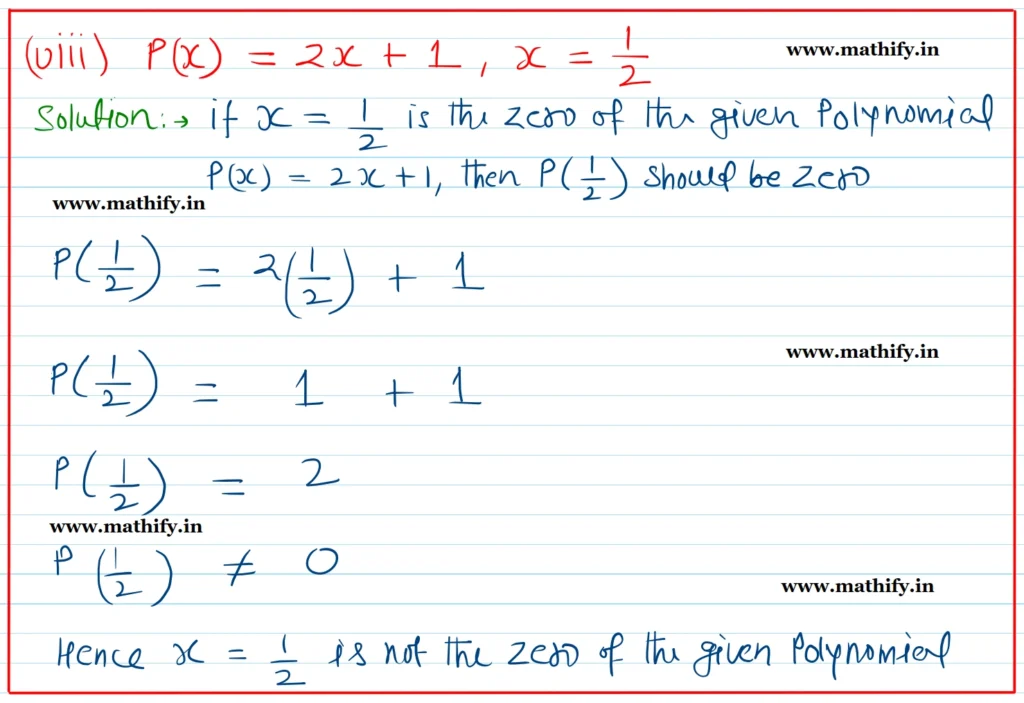 (viii) P(x) = 2x + 1, x = 1/2
www.mathify.in
Solution:→ if x = 1/2 is the zero of the given Polynomial
P(x) = 2x + 1, then P(1/2) should be zero
www.mathify.in
P(1/2) = 2(1/2) + 1
www.mathify.in
P(1/2) = 1 + 1
P(1/2) = 2
www.mathify.in
P(1/2) ≠ 0
www.mathify.in
Hence x = 1/2 is not the zero of the given Polynomial